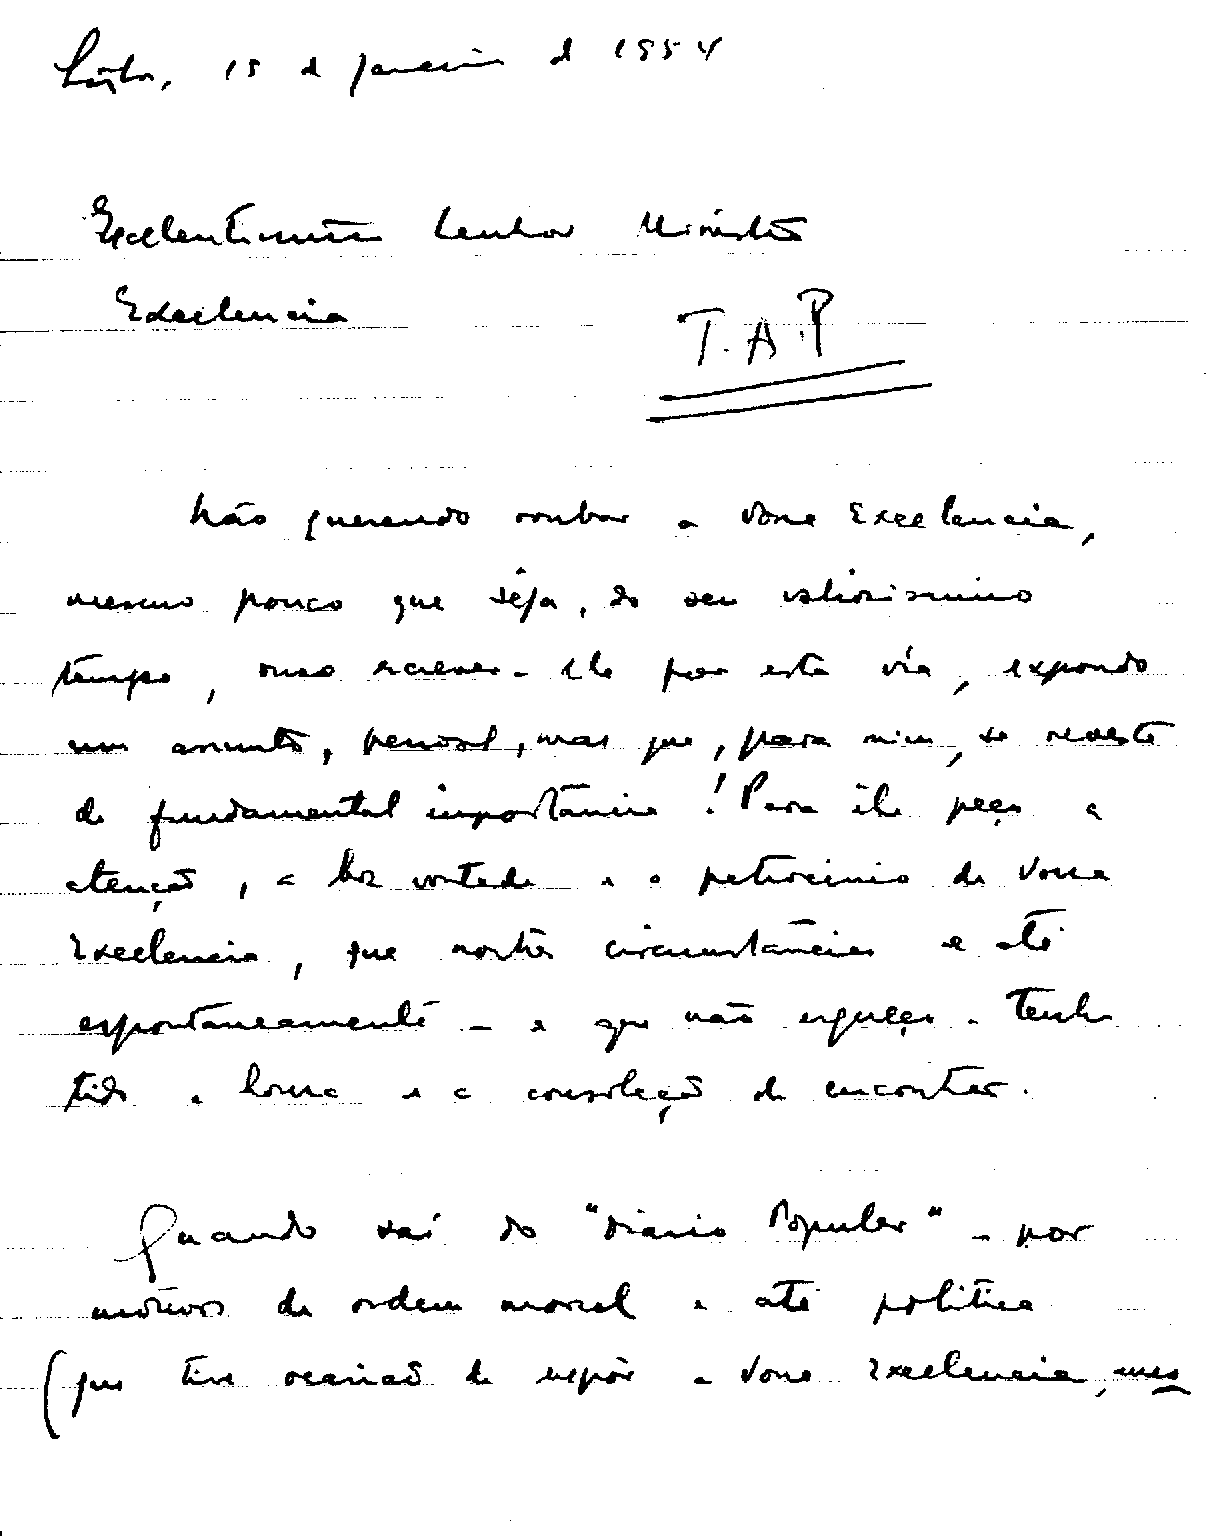 Lisboa, 15 de janeiro de 1954
Excelentíssimo Senhor Ministro
Excelencia
T.A.P
Não querendo roubar a Vossa Excelencia,
mesmo pouco que sêja, do seu valiosissimo
tempo, ouso escrever-lhe por esta via, expondo
um assunto, pessoal, mas que, para mim, se reveste
de fundamental importância! Para êle peço a
atenção, a boa vontade e o patrocinio de Vossa
Excelencia, que noutras circunstâncias e até
espontaneamente - e que não esqueço - tenho
tido a honra e a consolação de encontrar.
Quando saí do "Diario Popular" - por
motivos de ordem moral e até politica
(que tive ocasião de expôr a Vossa Excelencia, mes